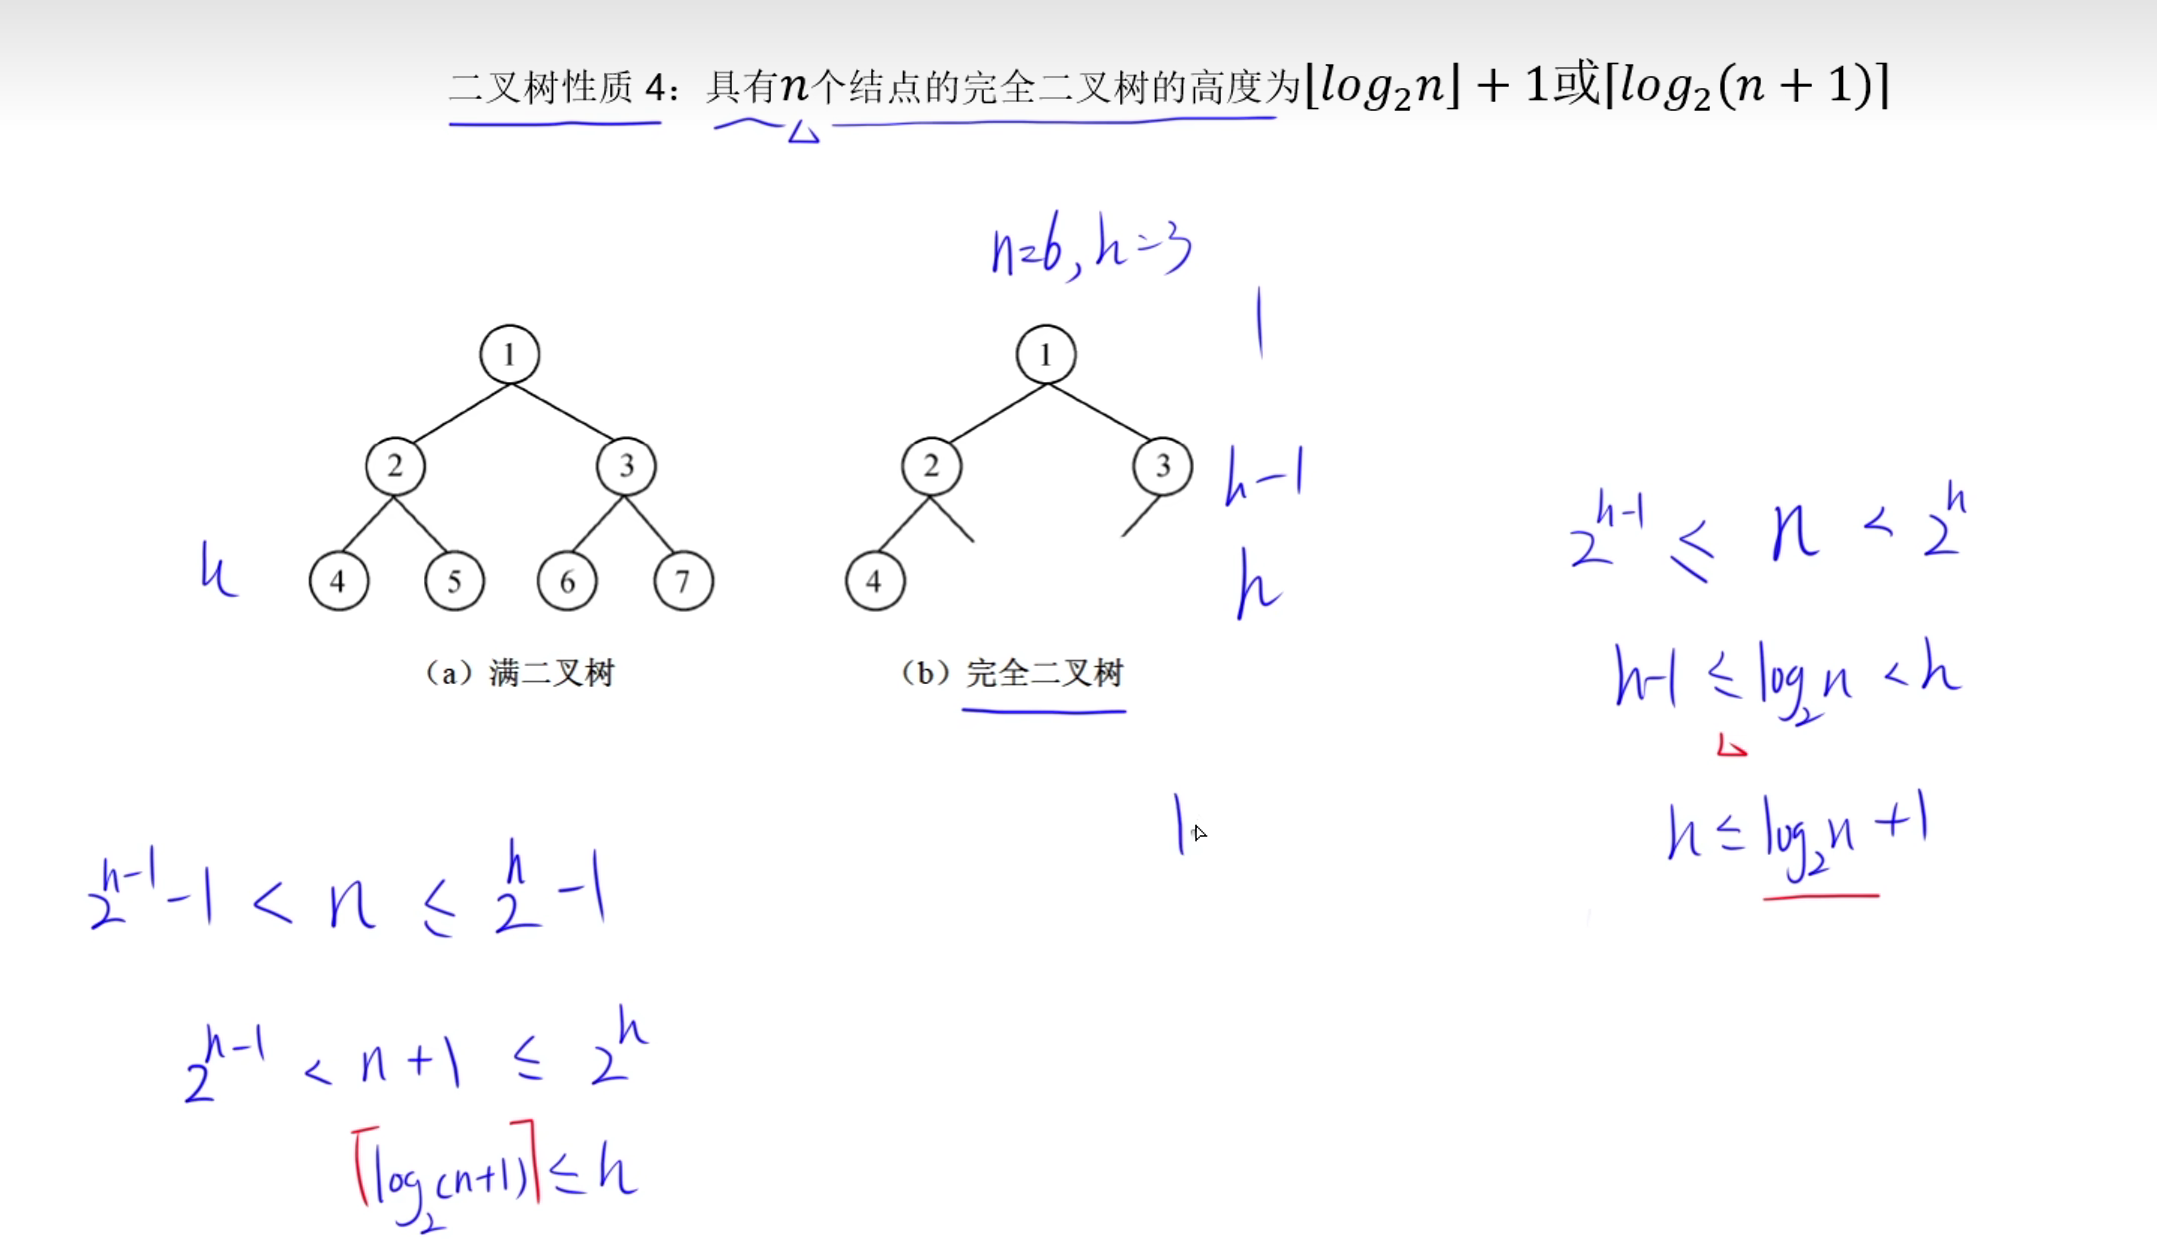 二叉树性质 4：具有n个结点的完全二叉树的高度为⌊log₂n⌋ + 1或⌈log₂(n + 1)⌉
n=6, h=3
1
1 1
2 3 2 3 h-1
4 5 6 7 4 h
h
(a) 满二叉树 (b) 完全二叉树
2^(h-1) ≤ n < 2^h
h-1 ≤ log₂n < h
h ≤ log₂n +1
2^(h-1) -1 < n ≤ 2^h -1
2^(h-1) < n+1 ≤ 2^h
⌈log₂(n+1)⌉ ≤ h